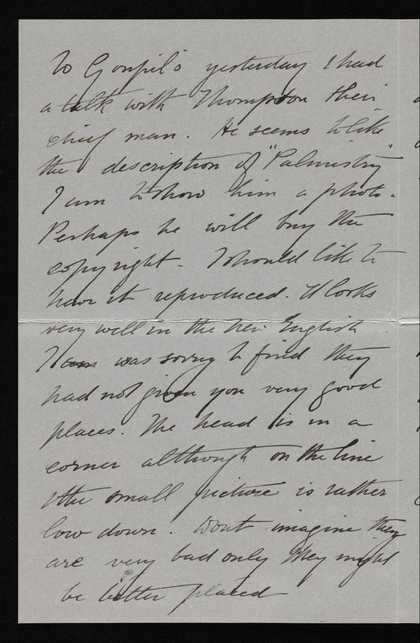 To Goupil's yesterday I had
a talk with Thompson their
chief man. He seems to like
the description of "Palmistry"
I am to show him a photo.
Perhaps he will buy the
copyright. I should like to
have it reproduced. It looks
very well in the New English
I was sorry to find they
had not given you very good
places. The head is in a
corner although on the line
& the small picture is rather
low down. Dont imagine they
are very bad only they might
be better placed